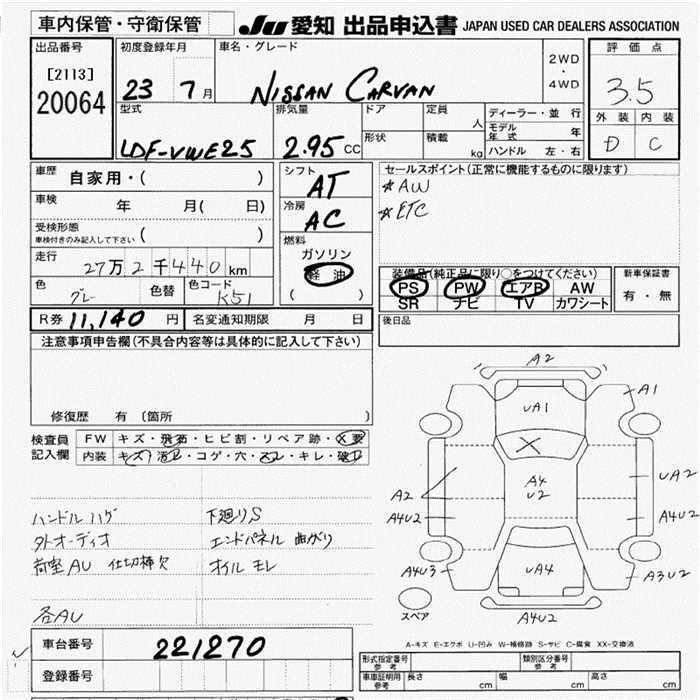 車内保管・守衛保管 JU 愛知 出品申込書 JAPAN USED CAR DEALERS ASSOCIATION
出品番号
[2113]
20064
初度登録年月
23 7月
車名・グレード
NISSAN CARVAN
2WD
・
4WD
評価点
3.5
外装 内装
D C
型式
LDF-VWE25
排気量
2.95 CC
ドア
定員
人
形状
積載
kg
ディーラー・並行
モデル年式 年
ハンドル 左・右
車歴 自家用・( )
車検 年 月( 日)
受検形態
車検付きのみ記入して下さい ( )
走行
27万2千440 km
色
グレー
色替
色コード
K51
シフト
AT
冷房
AC
燃料
ガソリン
軽油
( )
セールスポイント(正常に機能するものに限ります)
☆AW
☆ETC
装備品(純正品に限り○をつけてください)
PS PW エアB AW
SR ナビ TV カワシート
新車保証書
有・無
R券 11,140 円 名変通知期限 月 日
後日品
注意事項申告欄(不具合内容等は具体的に記入して下さい)
修復歴 有(箇所 )
検査員
記入欄
FW キズ・飛石・ヒビ割・リペア跡・X要
内装 キズ・汚レ・コゲ・穴・スレ・キレ・破レ
ハンドルハゲ 下廻りS
外オーディオ エンドパネル曲がり
荷室AU 仕切棒欠 オイルモレ
各AU
A2
A1
UA1
X
A4
U2
A2
UA2
A4U2
A4U2
A4U3
UA4
A3U2
A4U2
スペア
A-キズ E-エクボ U-凹み W-補修跡 S-サビ C-腐食 XX-交換済
車台番号 221270
登録番号
形式指定番号
参考
類別区分番号
参考
車庫証明用
参考
長さ cm 幅 cm 高さ cm